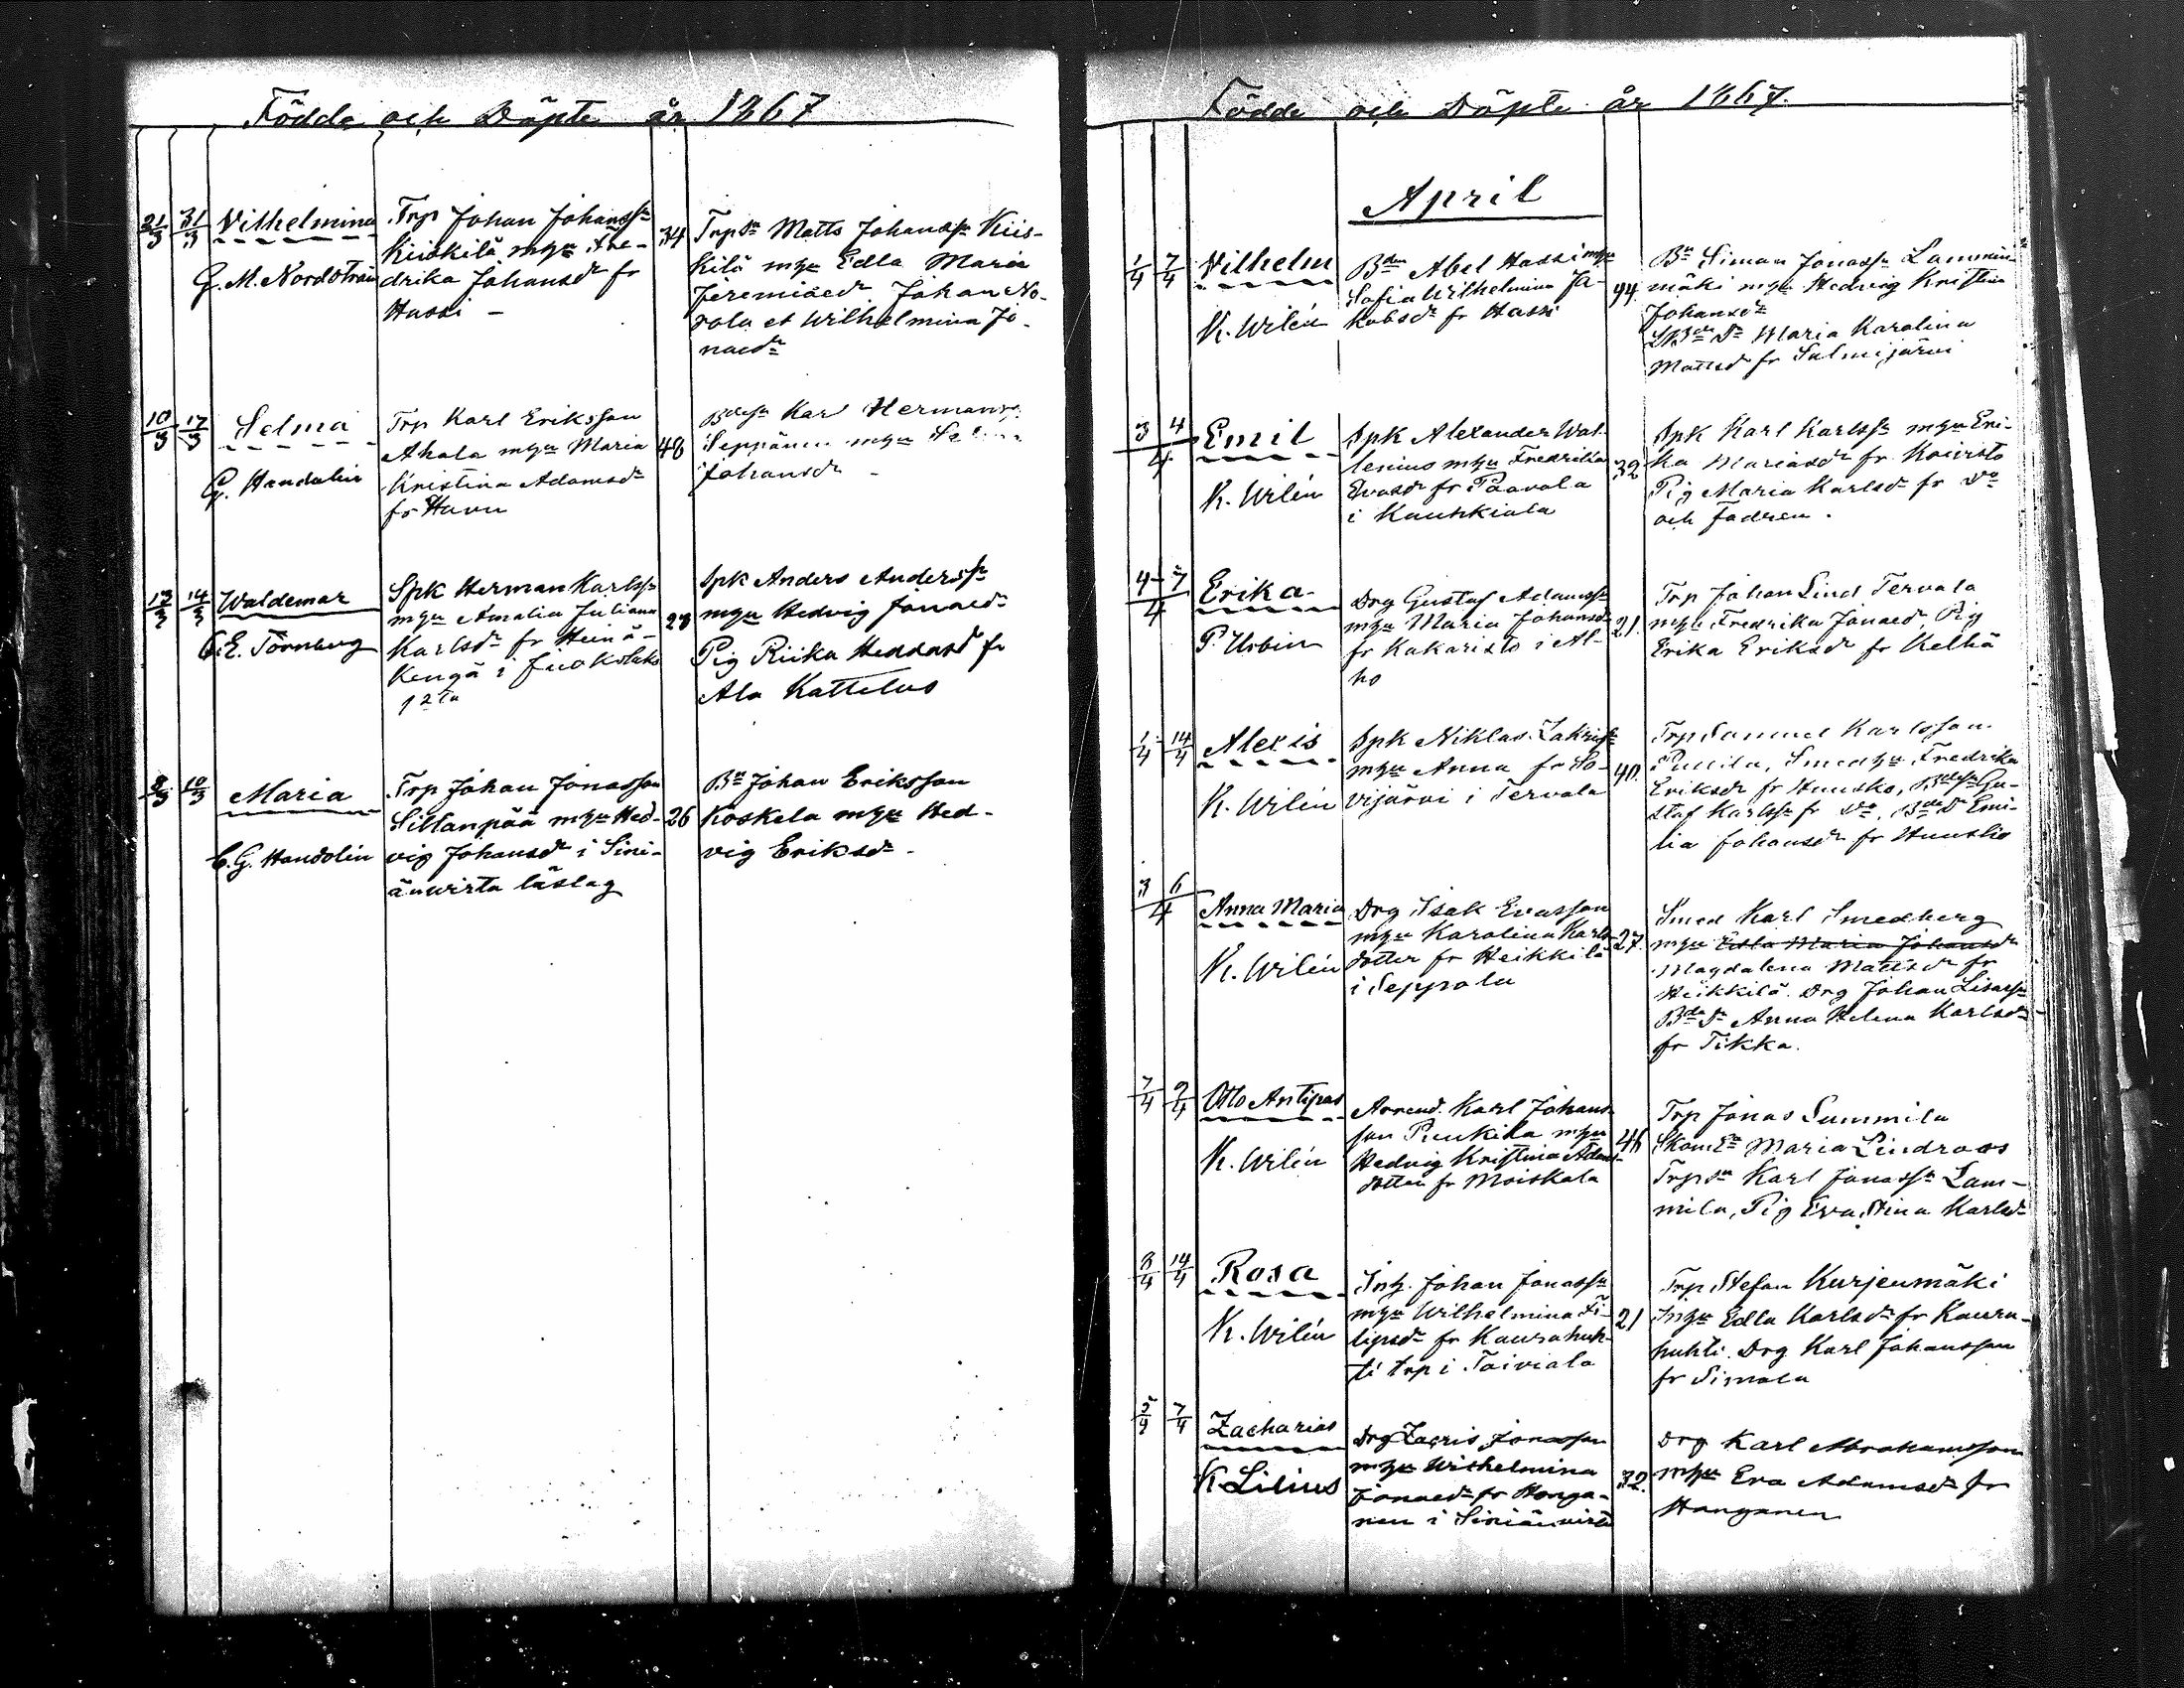 Födde och Döpte år 1867
21/3 31/3 Vilhelmina
G. M. Nordström
Trp Johan Johanss:n
Kiiskilä mh:u Fre-
drika Johansd:r fr
Hassi -
34
Trp S:n Matts Johanss:n Kiis-
kilä mh:u Edla Maria
Jeremiaed:r Johan No-
et Wilhelmina Jo-
naed:r
10/3 17/3 Selma
G. Handolin
Trp Karl Eriksson
Ahala mh:u Maria
Kristina Adamsd:r
fr Havu
48
Karl Hermanss:
Seppänen mh:u
Johansd:r -
13/3 14/3 Waldemar
E. Törnberg
Spk Herman Karlss:n
mh:u Amalia Juliana
Karlsd:r fr Heinä-
kengä i
12ta
23
Spk Anders Anderss:n
mh:u Hedvig Jonaed:r
Pig Riika fr
Ala Kattelus
8/3 10/3 Maria
C. G. Handolin
Trp Johan Jonasson
Sillanpää mh:u Hed-
vig Johansd:r i Sini-
änvirta läslag
26
B:n Johan Eriksson
Koskela mh:u Hed-
vig Eriksd:r -
Födde och Döpte år 1867.
April
1/4 7/4 Vilhelm
K. Wilén
B:den Abel Hassi mh:u
Sofia Wilhelmina Ja-
kobsd:r fr Hassi
44.
B:n Simon Jonass:n Lammin-
mäki mh:u Hedvig Kristina
Johansd:r
D:r Maria Karolina
Mattsd:r fr Salmijärvi
3 4/4 Emil
K. Wilén
Spk Alexander Wal-
lenius mh:u Fredrika
Evasd:r fr Paavola
i Kauhkiala
32
Spk Karl Karlss:n mh:u Eri-
ka Mariasd:r fr Koivisto
Pig Maria Karlsd:r fr D:o
och fadren.
4 7/4 Erika
P. Urbin
Drg Gustaf Adamss:n
mh:u Maria Johansd:r
fr Kakaristo i Al-
ho
21.
Trp Johan Lind Tervala
mh:u Fredrika Jonaed:r Pig
Erika Eriksd:r fr Kelhä
1/4 14/4 Alexis
K. Wilén
Spk Niklas Zakriss:n
mh:u Anna fr Ho-
vijärvi i Tervala
40.
Trp Samuel Karlsson
Fredrika
Eriksd:r fr Gu-
staf Karlss:n fr D:o, B:de D:r Emi-
lia Johansd:r fr
3 6/4 Anna Maria
K. Wilén
Drg Isak Evasson
mh:u Karolina Karls-
dotter fr Heikkilä
i Seppola
27.
Smed Karl Smedberg
mh:u Edla Maria Johansd:r
Magdalena Mattsd:r fr
Heikkilä. Drg Johan Lisass:n
B:de D:r Anna Helena Karlsd:r
fr Tikka.
7/4 9/4 Otto Antipas
K. Wilén
Arrend. Karl Johans-
son Punkila mh:u
Hedvig Kristina Adams-
dotter fr Moiskala
46
Trp Jonas Lammila
Maria Lindroos
Trp S:n Karl Jonass:n Lam-
mila, Pig Eva Stina Karlsd:r
8/4 14/4 Rosa
K. Wilén
Inh. Johan Jonass:n
mh:u Wilhelmina Fi-
lipsd:r fr Kaurahuh-
ti trp i Toiviala
21
Trp Stefan Kurjenmäki
mh:u Edla Karlsd:r fr Kaura-
huhti. Drg Karl Johansson
fr Simola
5/4 7/4 Zacharias
K Lilius
Drg Zacris Jonasson
mh:u Wilhelmina
Jonaed:r fr Honga-
nen i Siniänvirta
32.
Drg Karl Abrahamsson
mh:u Eva Adamsd:r fr
Honganen